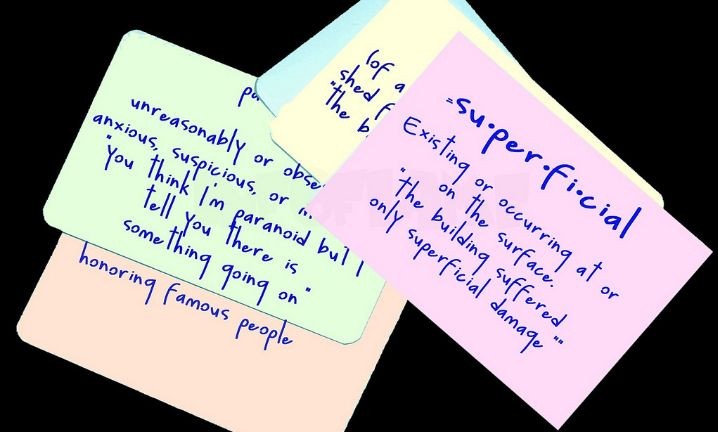 pa
unreasonably or obse
anxious, suspicious, or m
"You think I'm paranoid but I
tell you there is
something going on"
honoring famous people
(of a
shed f
"the b
=su·per·fi·cial
Existing or occurring at or
on the surface.
"the building suffered
only superficial damage""